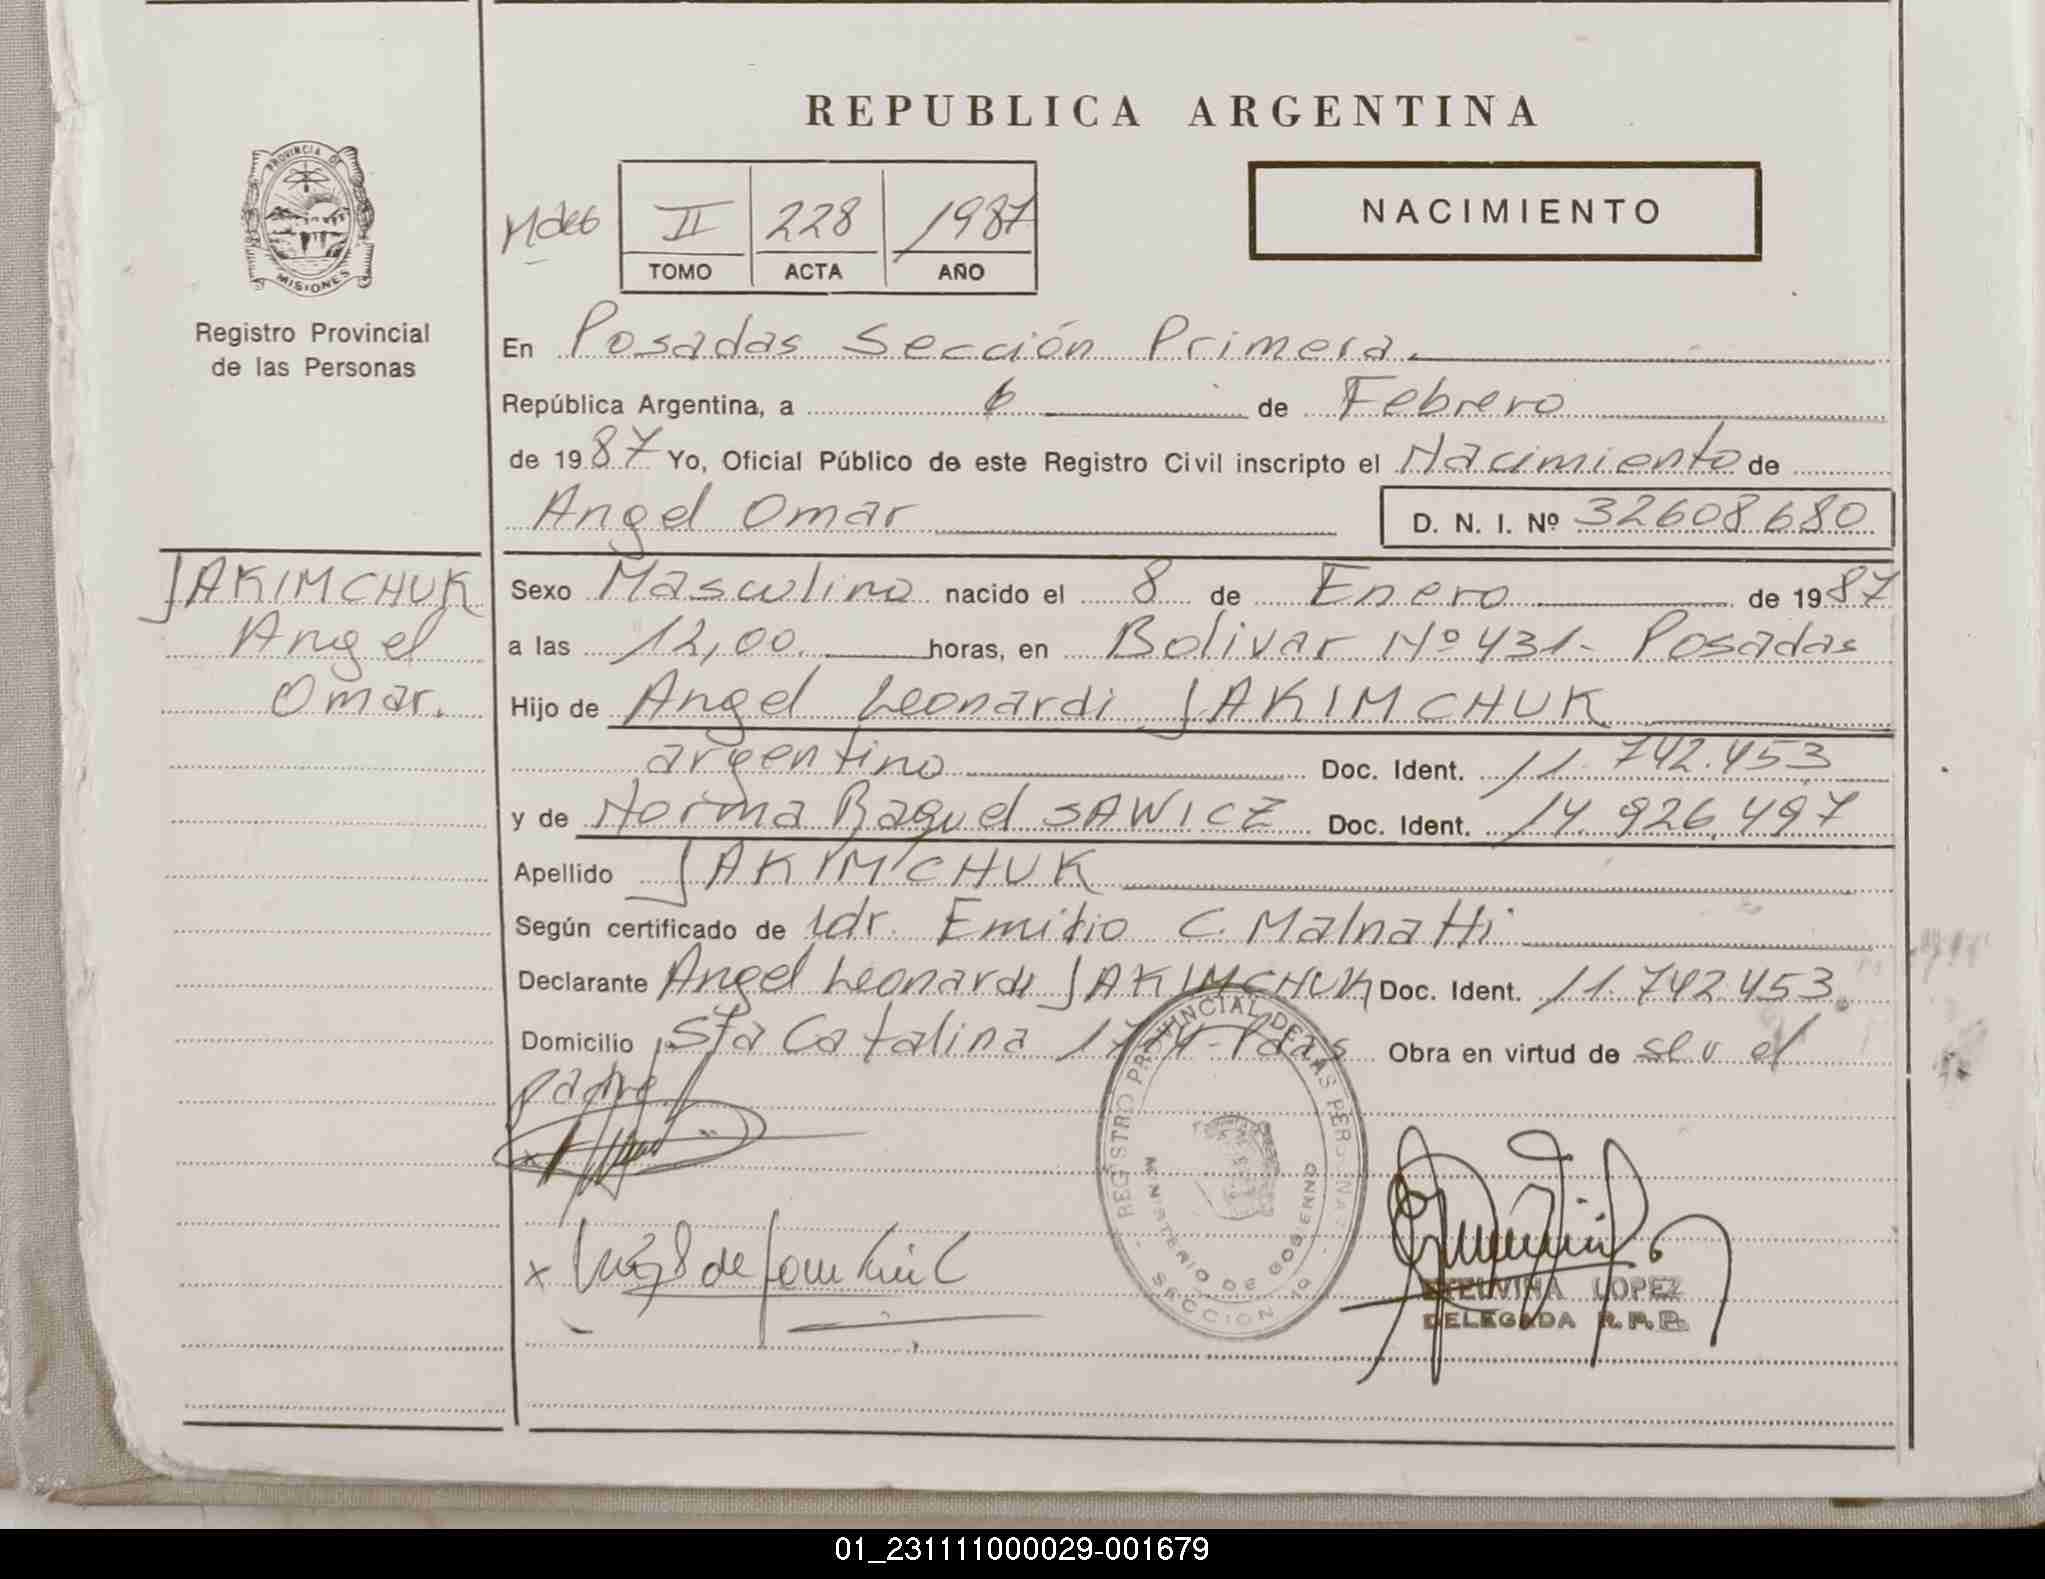 REPUBLICA ARGENTINA
PROVINCIA DE
MISIONES
Registro Provincial
de las Personas
NACIMIENTO
II 228 1987
TOMO ACTA AÑO
En Posadas Sección Primera.
República Argentina, a 6 de Febrero
de 1987 Yo, Oficial Público de este Registro Civil inscripto el Nacimiento de
Angel Omar D. N. I. Nº 32608680
JAKIMCHUK
Angel
Omar.
Sexo Masculino nacido el 8 de Enero de 1987
a las 12,00. horas, en Bolivar Nº 431- Posadas
Hijo de Angel Leonardi JAKIMCHUK
argentino Doc. Ident. 11.742.453
y de Norma Raquel SAWICZ Doc. Ident. 14.926.497
Apellido JAKIMCHUK
Según certificado de Dr. Emilio C. Malnatti
Declarante Angel Leonardi JAKIMCHUK Doc. Ident. 11.742.453.
Domicilio Sta Catalina Pdas Obra en virtud de ser el
padre
REGISTRO PROVINCIAL DE LAS PERSONAS
MINISTERIO DE GOBIERNO
SECCION 1º
ETELVINA LOPEZ
DELEGADA R.P.P.
01_231111000029-001679